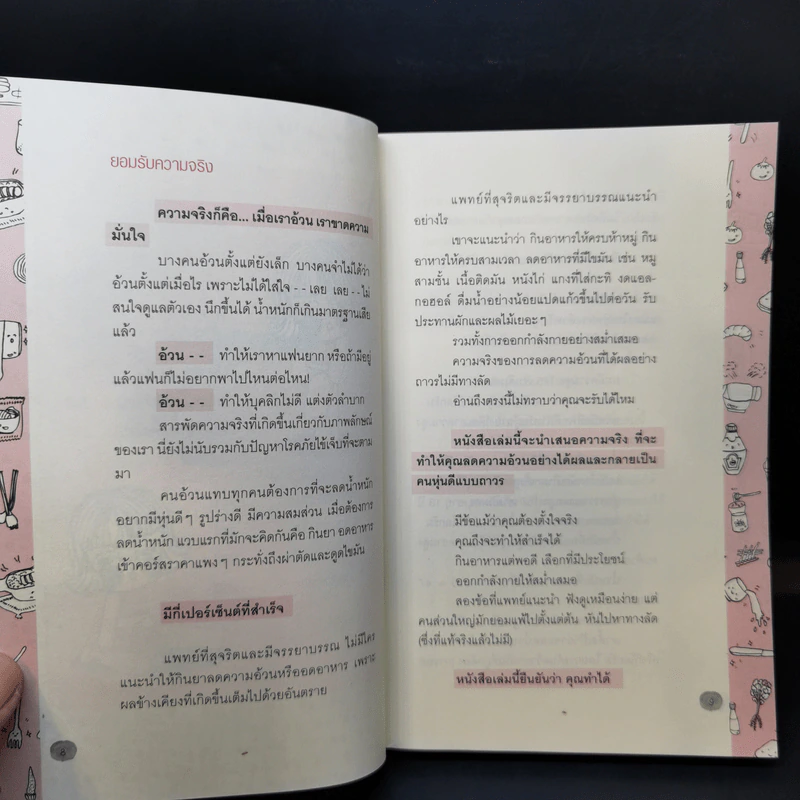 ยอมรับความจริง
ความจริงก็คือ... เมื่อเราอ้วน เราขาดความ
มั่นใจ
บางคนอ้วนตั้งแต่ยังเล็ก บางคนจำไม่ได้ว่า
อ้วนตั้งแต่เมื่อไร เพราะไม่ได้ใส่ใจ - - เลย เลย - - ไม่
สนใจดูแลตัวเอง นึกขึ้นได้ น้ำหนักก็เกินมาตรฐานเสีย
แล้ว
อ้วน - - ทำให้เราหาแฟนยาก หรือถ้ามีอยู่
แล้วแฟนก็ไม่อยากพาไปไหนต่อไหน!
อ้วน - - ทำให้บุคลิกไม่ดี แต่งตัวลำบาก
สารพัดความจริงที่เกิดขึ้นเกี่ยวกับภาพลักษณ์
ของเรา นี่ยังไม่นับรวมกับปัญหาโรคภัยไข้เจ็บที่จะตาม
มา
คนอ้วนแทบทุกคนต้องการที่จะลดน้ำหนัก
อยากมีหุ่นดีๆ รูปร่างดี มีความสมส่วน เมื่อต้องการ
ลดน้ำหนัก แวบแรกที่มักจะคิดกันคือ กินยา อดอาหาร
เข้าคอร์สราคาแพงๆ กระทั่งถึงผ่าตัดและดูดไขมัน
มีกี่เปอร์เซ็นต์ที่สำเร็จ
แพทย์ที่สุจริตและมีจรรยาบรรณ ไม่มีใคร
แนะนำให้กินยาลดความอ้วนหรืออดอาหาร เพราะ
ผลข้างเคียงที่เกิดขึ้นเต็มไปด้วยอันตราย
แพทย์ที่สุจริตและมีจรรยาบรรณแนะนำ
อย่างไร
เขาจะแนะนำว่า กินอาหารให้ครบห้าหมู่ กิน
อาหารให้ครบสามเวลา ลดอาหารที่มีไขมัน เช่น หมู
สามชั้น เนื้อติดมัน หนังไก่ แกงที่ใส่กะทิ งดแอล-
กอฮอล์ ดื่มน้ำอย่างน้อยแปดแก้วขึ้นไปต่อวัน รับ
ประทานผักและผลไม้เยอะๆ
รวมทั้งการออกกำลังกายอย่างสม่ำเสมอ
ความจริงของการลดความอ้วนที่ได้ผลอย่าง
ถาวรไม่มีทางลัด
อ่านถึงตรงนี้ไม่ทราบว่าคุณจะรับได้ไหม
หนังสือเล่มนี้จะนำเสนอความจริง ที่จะ
ทำให้คุณลดความอ้วนอย่างได้ผลและกลายเป็น
คนหุ่นดีแบบถาวร
มีข้อแม้ว่าคุณต้องตั้งใจจริง
คุณถึงจะทำให้สำเร็จได้
กินอาหารแต่พอดี เลือกที่มีประโยชน์
ออกกำลังกายให้สม่ำเสมอ
สองข้อที่แพทย์แนะนำ ฟังดูเหมือนง่าย แต่
คนส่วนใหญ่มักยอมแพ้ไปตั้งแต่ต้น หันไปหาทางลัด
(ซึ่งที่แท้จริงแล้วไม่มี)
หนังสือเล่มนี้ยืนยันว่า คุณทำได้